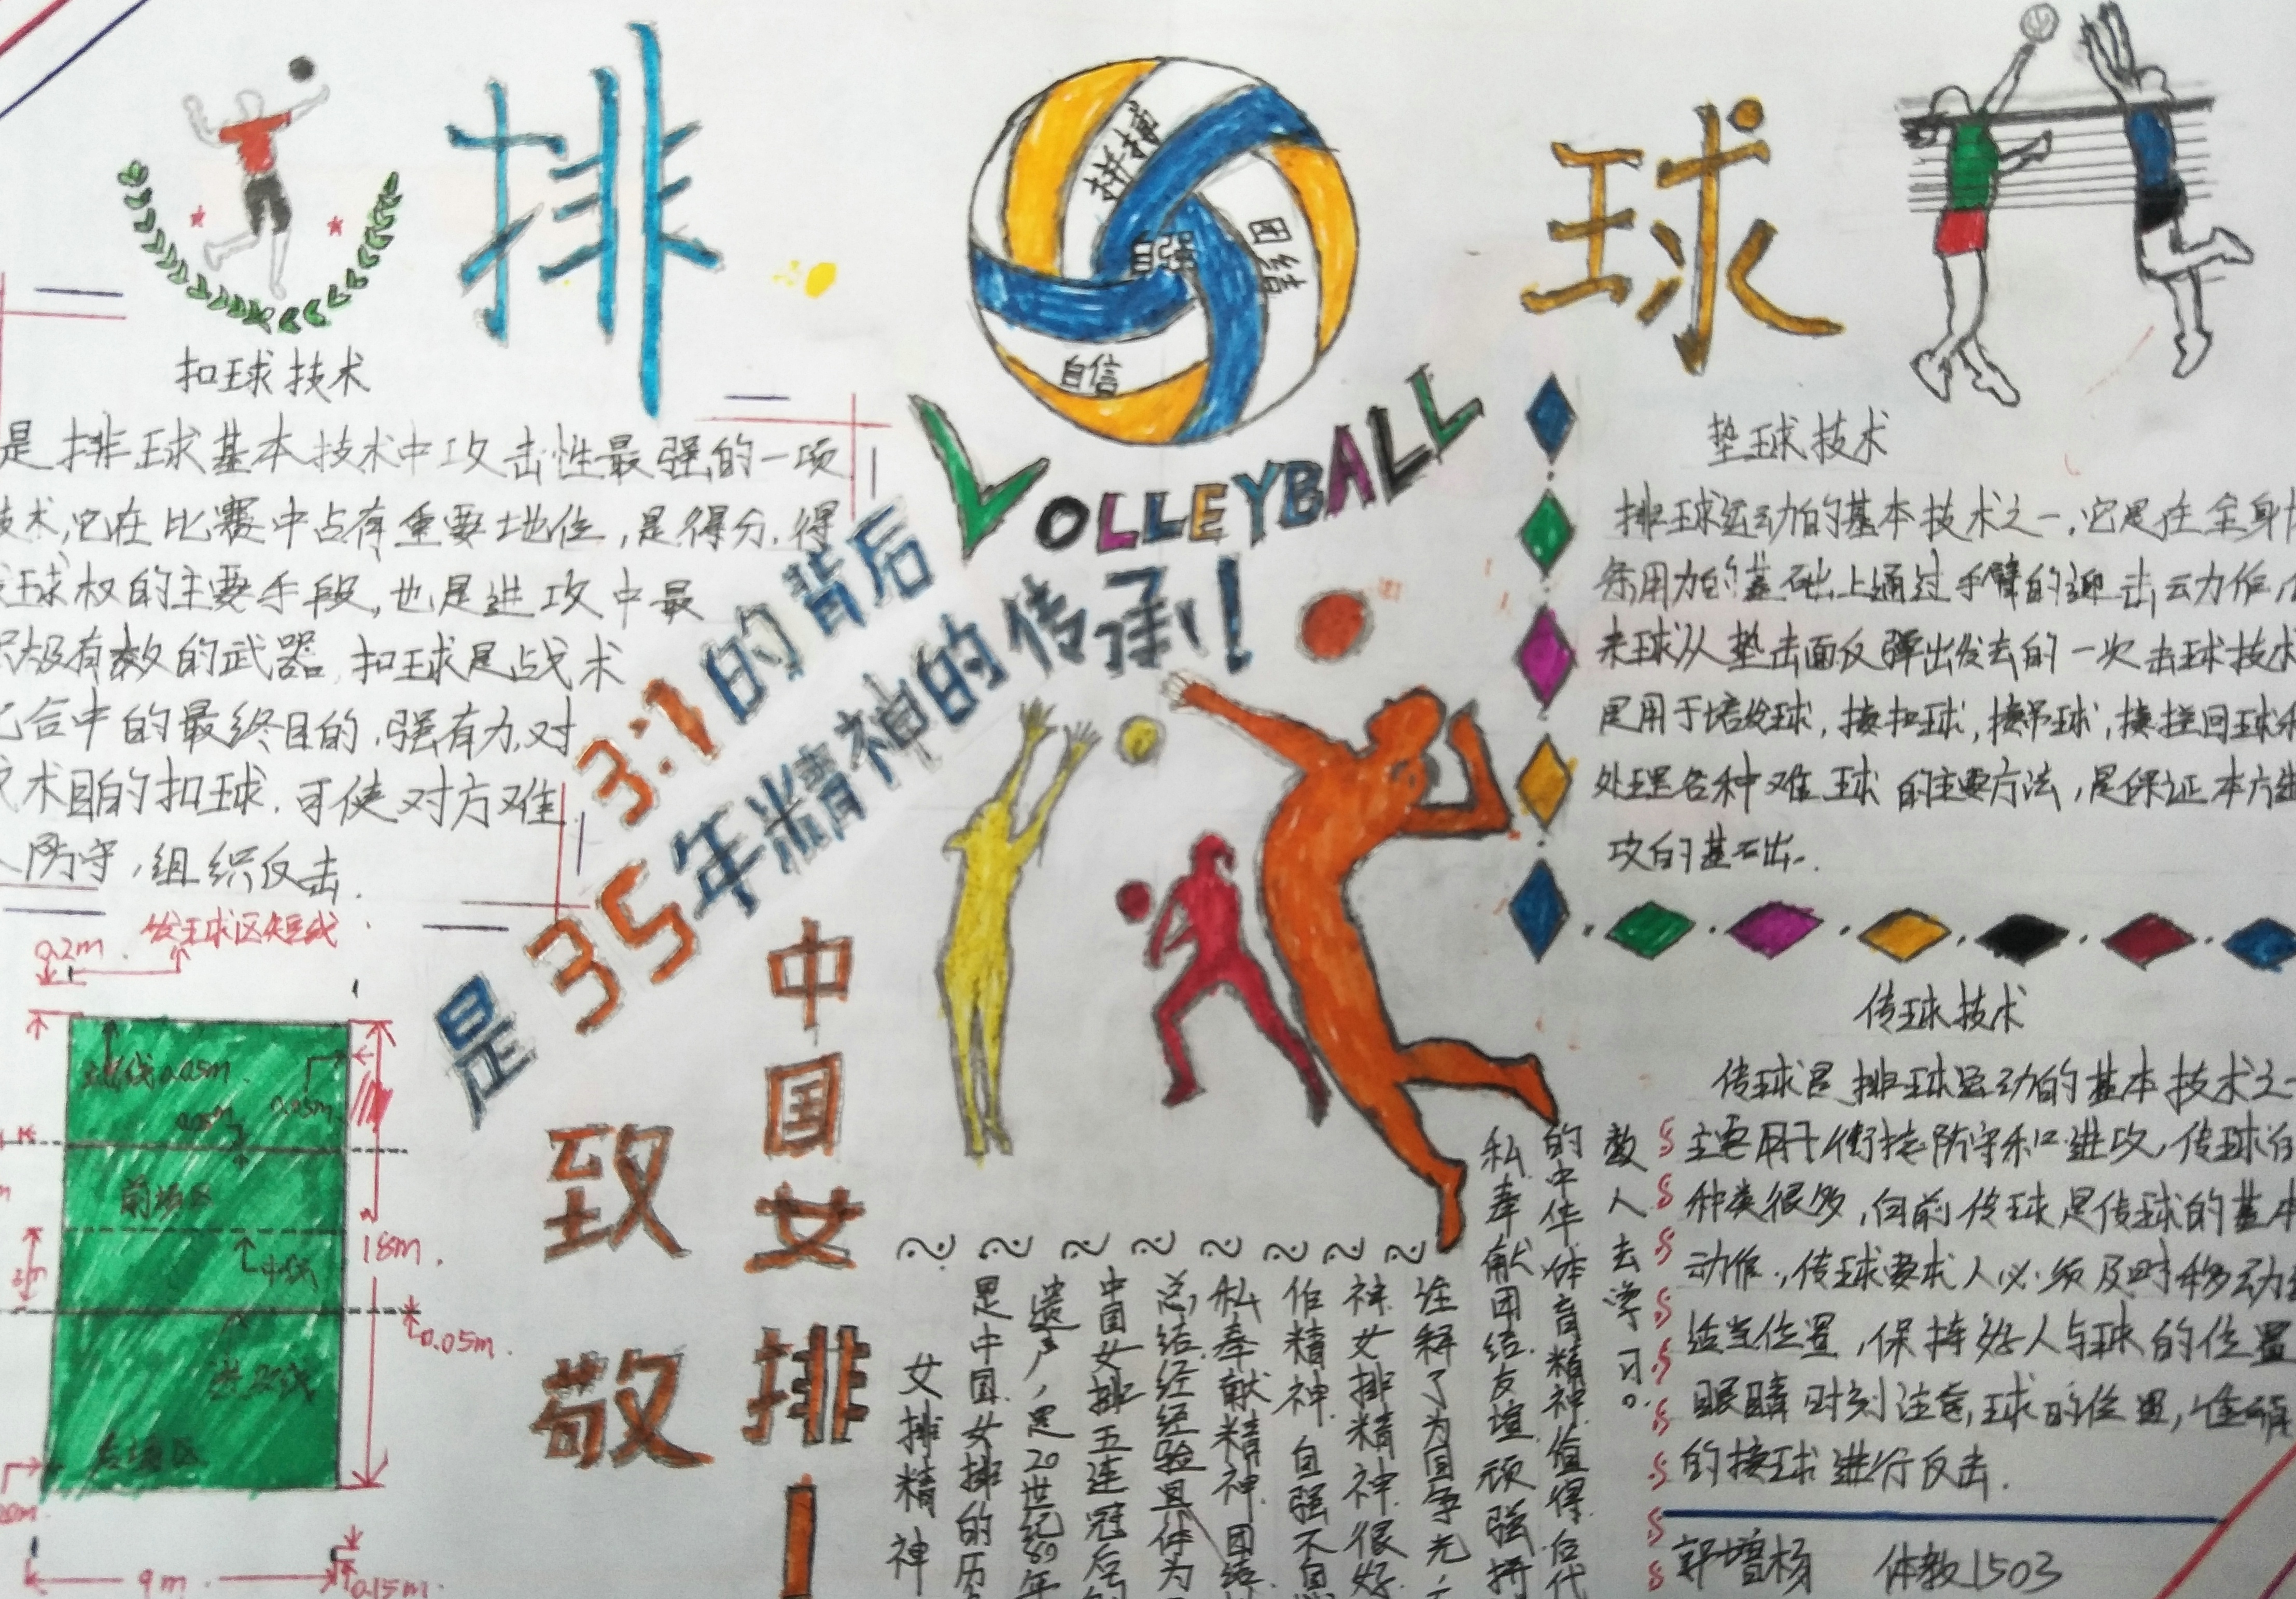 排球
拼搏
自强
团结
自信
VOLLEYBALL
3:1的背后
是35年精神的传承!
致敬
中国女排!
扣球技术
是排球基本技术中攻击性最强的一项
技术,它在比赛中占有重要地位,是得分.得
球权的主要手段,也是进攻中最
积极有效的武器,扣球是战术
合中的最终目的.强有力,对
术目的扣球.可使对方难
防守,组织反击.
0.2m
发球区短线
0.05m
0.05m
前场区
中线
18m
0.05m
进攻线
后场区
9m
0.15m
垫球技术
排球运动的基本技术之一,它是在全身
用力的基础上通过手臂的迎击动作
来球从垫击面反弹出发去的一次击球技术
是用于接发球,接扣球,接吊球,接拦回球
处理各种难球的主要方法,是保证本方进
攻的基础.
传球技术
传球是排球运动的基本技术之一
主要用于衔接防守和进攻.传球的
种类很多,向前传球是传球的基本
动作,传球要求人必须及时移动
适当位置,保持好人与球的位置
眼睛时刻注意,球的位置,准确
的接球进行反击.
女排精神
是中国女排的历
遗产,是20世纪80年
中国女排五连冠后
总结经验具体为
私奉献精神.团结
作精神.自强不息
神.女排精神很好
诠释了为国争光,
私奉献团结友谊顽强拼
的中华体育精神.值得后代
教人去学习。
郭增杨 体教1503